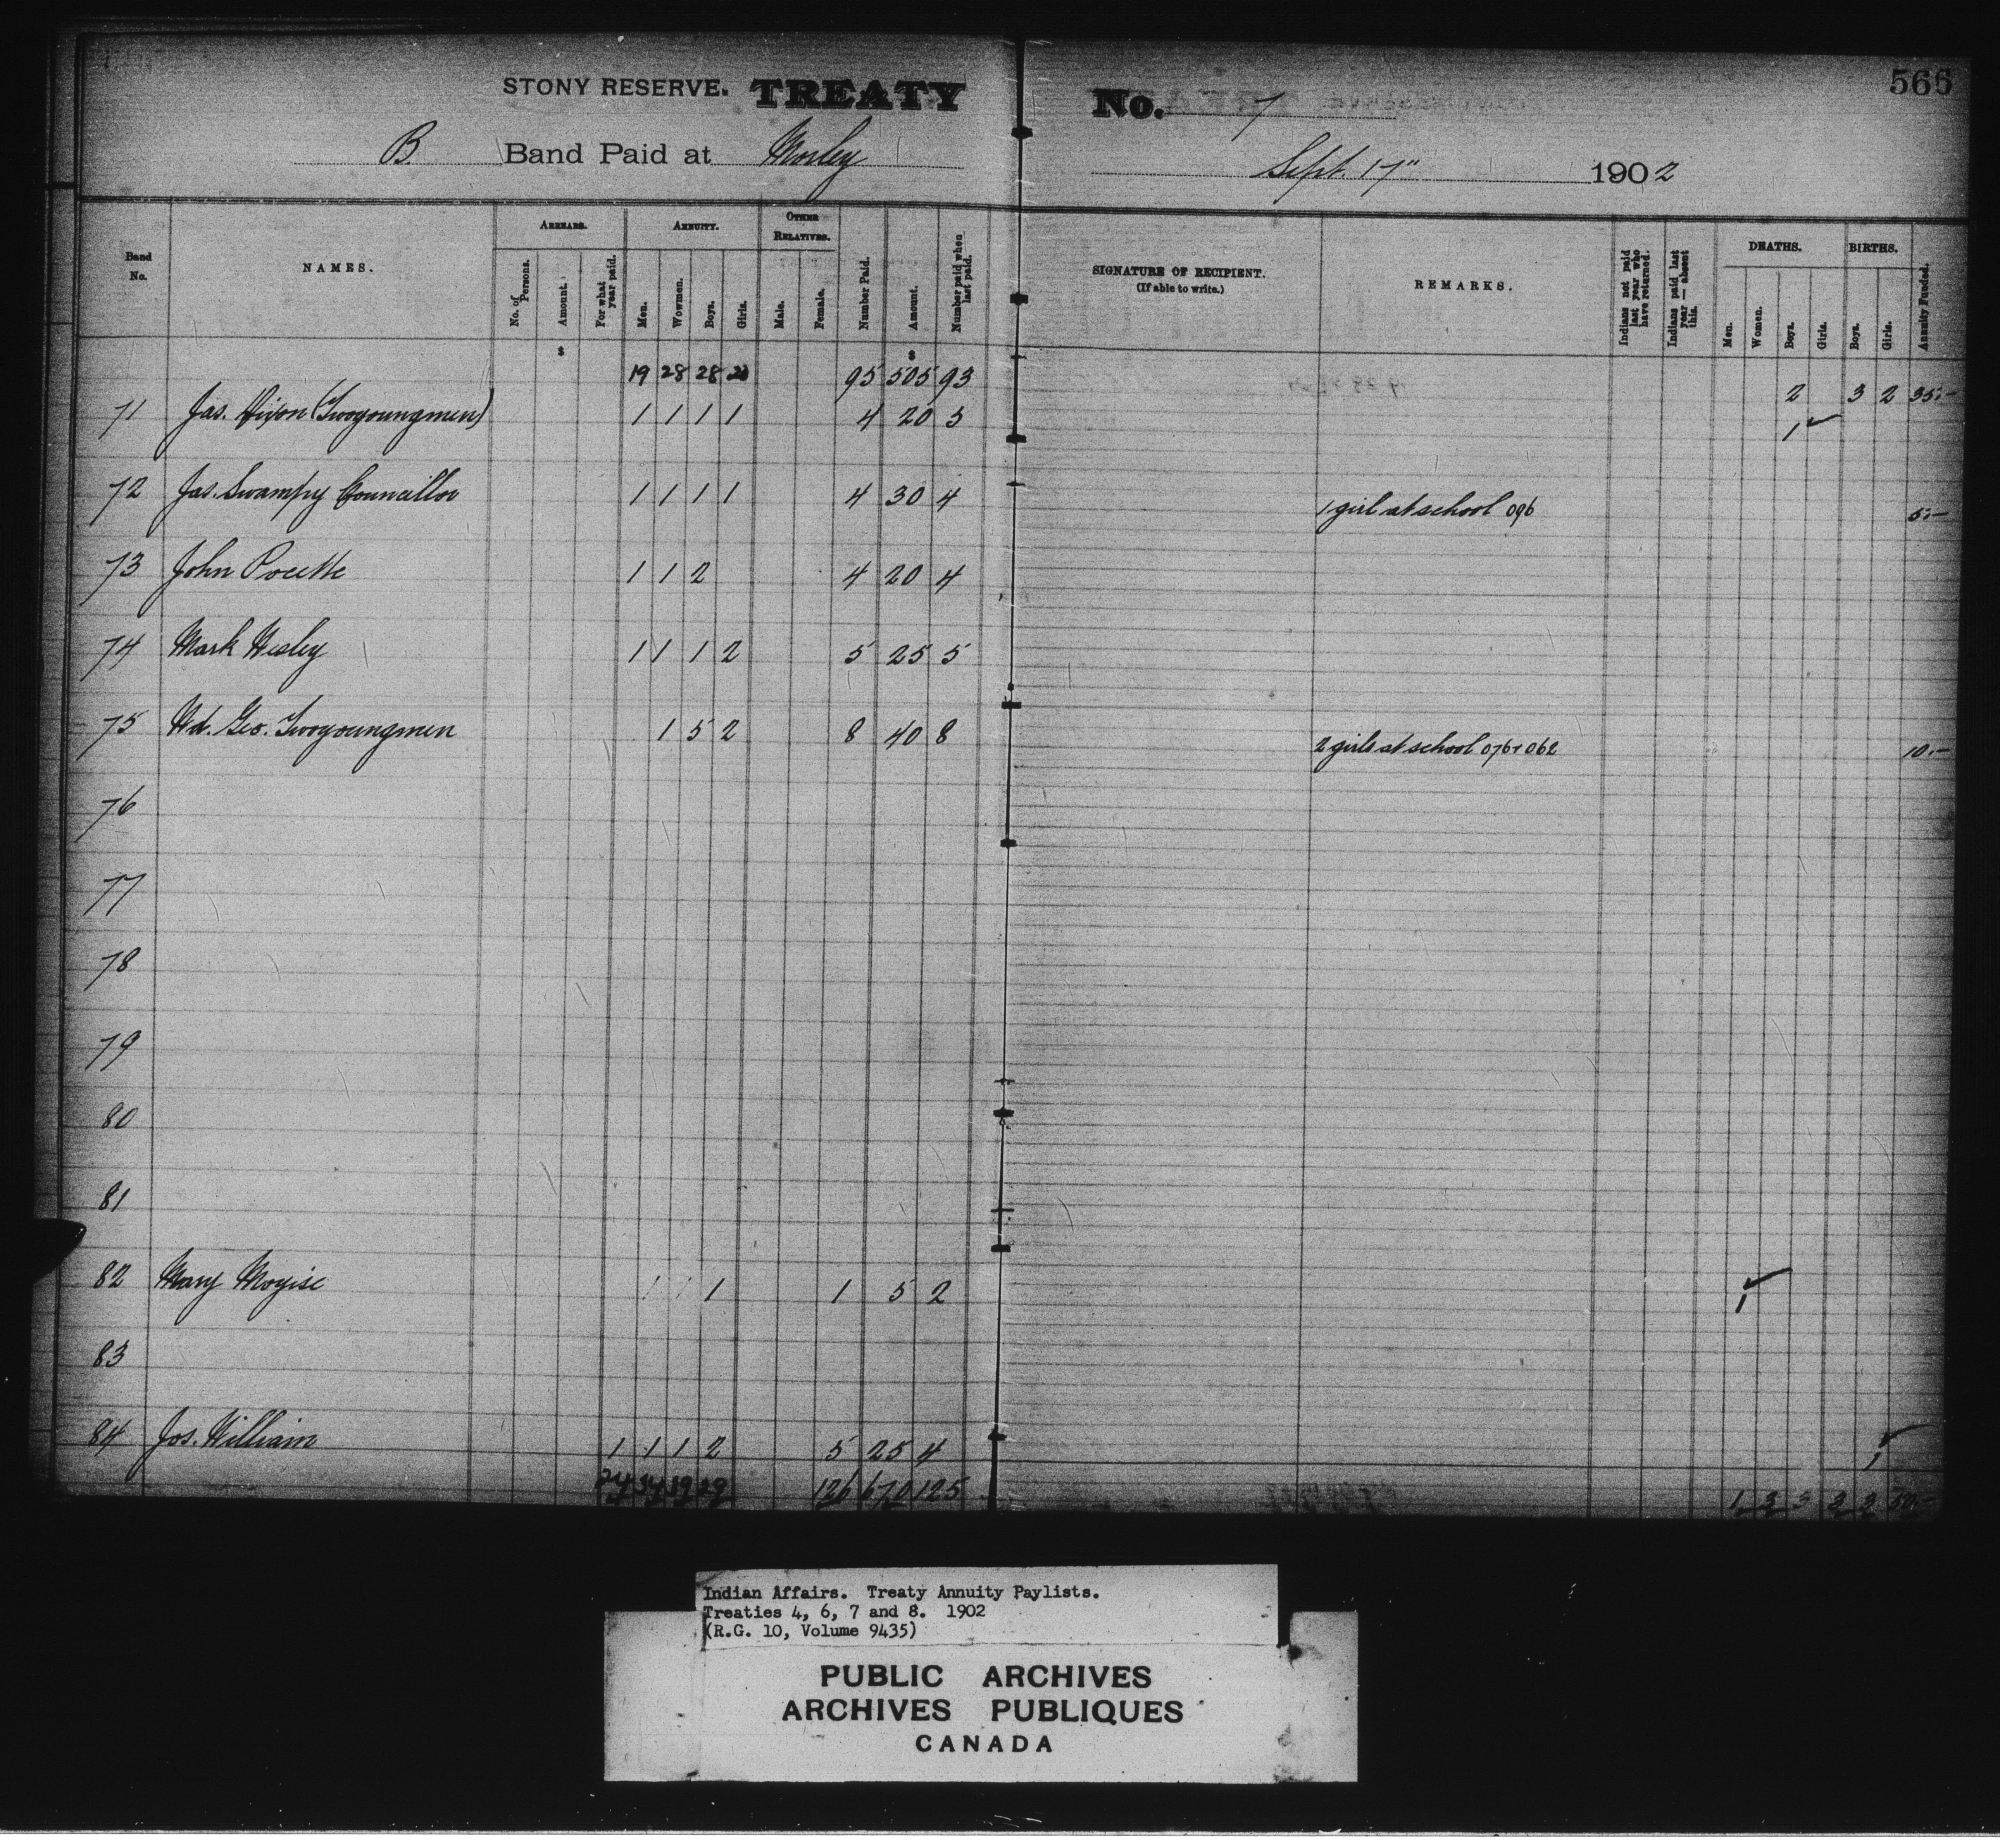 566
STONY RESERVE. TREATY No. 7
B. Band Paid at Morley Sept. 17" 1902
Band No. NAMES. ARREARS. No. of Persons. Amount. For what year paid. ANNUITY. Men. Wowmen. Boys. Girls. OTHER RELATIVES. Male. Female. Number Paid. Amount. Number paid when last paid. SIGNATURE OF RECIPIENT. (If able to write.) REMARKS. Indians not paid last year who have returned. Indians paid last year — absent this. DEATHS. Men. Women. Boys. Girls. BIRTHS. Boys. Girls. Annuity Funded.
$ $
19 28 28 20 95 505 93 2 3 2 35.-
71 Jas. Dixon (Twoyoungmen) 1 1 1 1 4 20 5 1 ✓
72 Jas. Swampy Councillor 1 1 1 1 4 30 4 1 girl at school 096 5.-
73 John Pocette 1 1 2 4 20 4
74 Mark Wesley 1 1 1 2 5 25 5
75 Wd. Geo. Twoyoungmen 1 5 2 8 40 8 2 girls at school 076+062 10.-
76
77
78
79
80
81
82 Mary Moyise 1 1 5 2 1 ✓
83
84 Jos. William 1 1 1 2 5 25 4 1 ✓
24 34 39 29 126 670 125 1 3 3 3 50.-
Indian Affairs. Treaty Annuity Paylists.
Treaties 4, 6, 7 and 8. 1902
(R.G. 10, Volume 9435)
PUBLIC ARCHIVES
ARCHIVES PUBLIQUES
CANADA